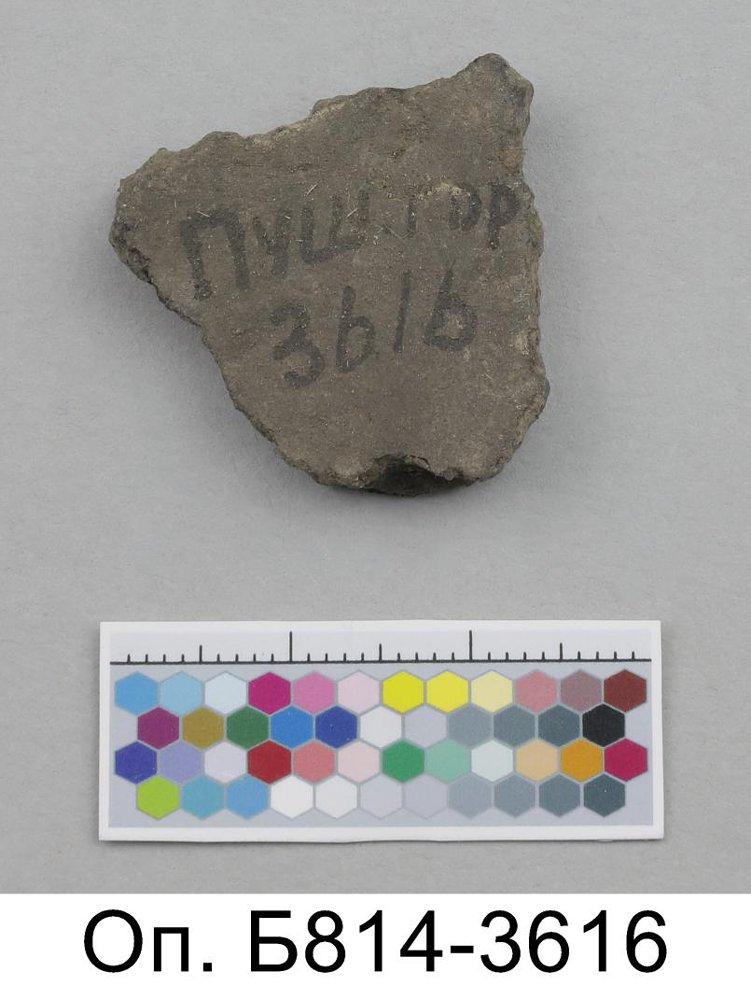 ПУШ.ГОР
3616
Оп. Б814-3616